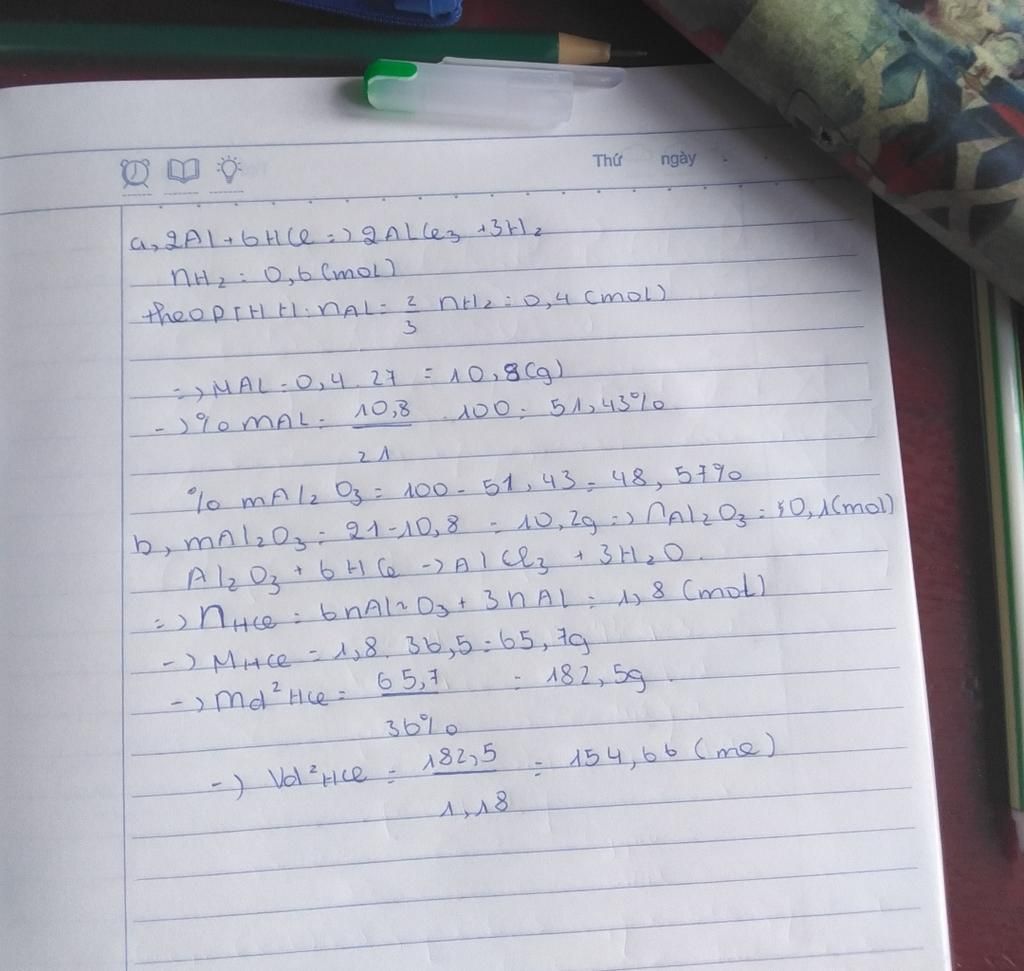 Thứ ngày
a, 2Al + 6HCl => 2AlCl3 + 3H2
nH2 = 0,6 (mol)
theo PTHH: nAl = 2/3 nH2 = 0,4 (mol)
=> MAl = 0,4 . 27 = 10,8 (g)
-> % mAl = 10,8/21 . 100 = 51,43%
% mAl2O3 = 100 - 51,43 = 48,57%
b, mAl2O3 = 21 - 10,8 = 10,2g => nAl2O3 = 0,1 (mol)
Al2O3 + 6HCl -> AlCl3 + 3H2O.
=> nHCl = 6nAl2O3 + 3nAl = 1,8 (mol)
-> MHCl = 1,8 . 36,5 = 65,7g
-> Md²HCl = 65,7/36% = 182,5g.
-> Vd²HCl = 182,5/1,18 = 154,66 (ml)